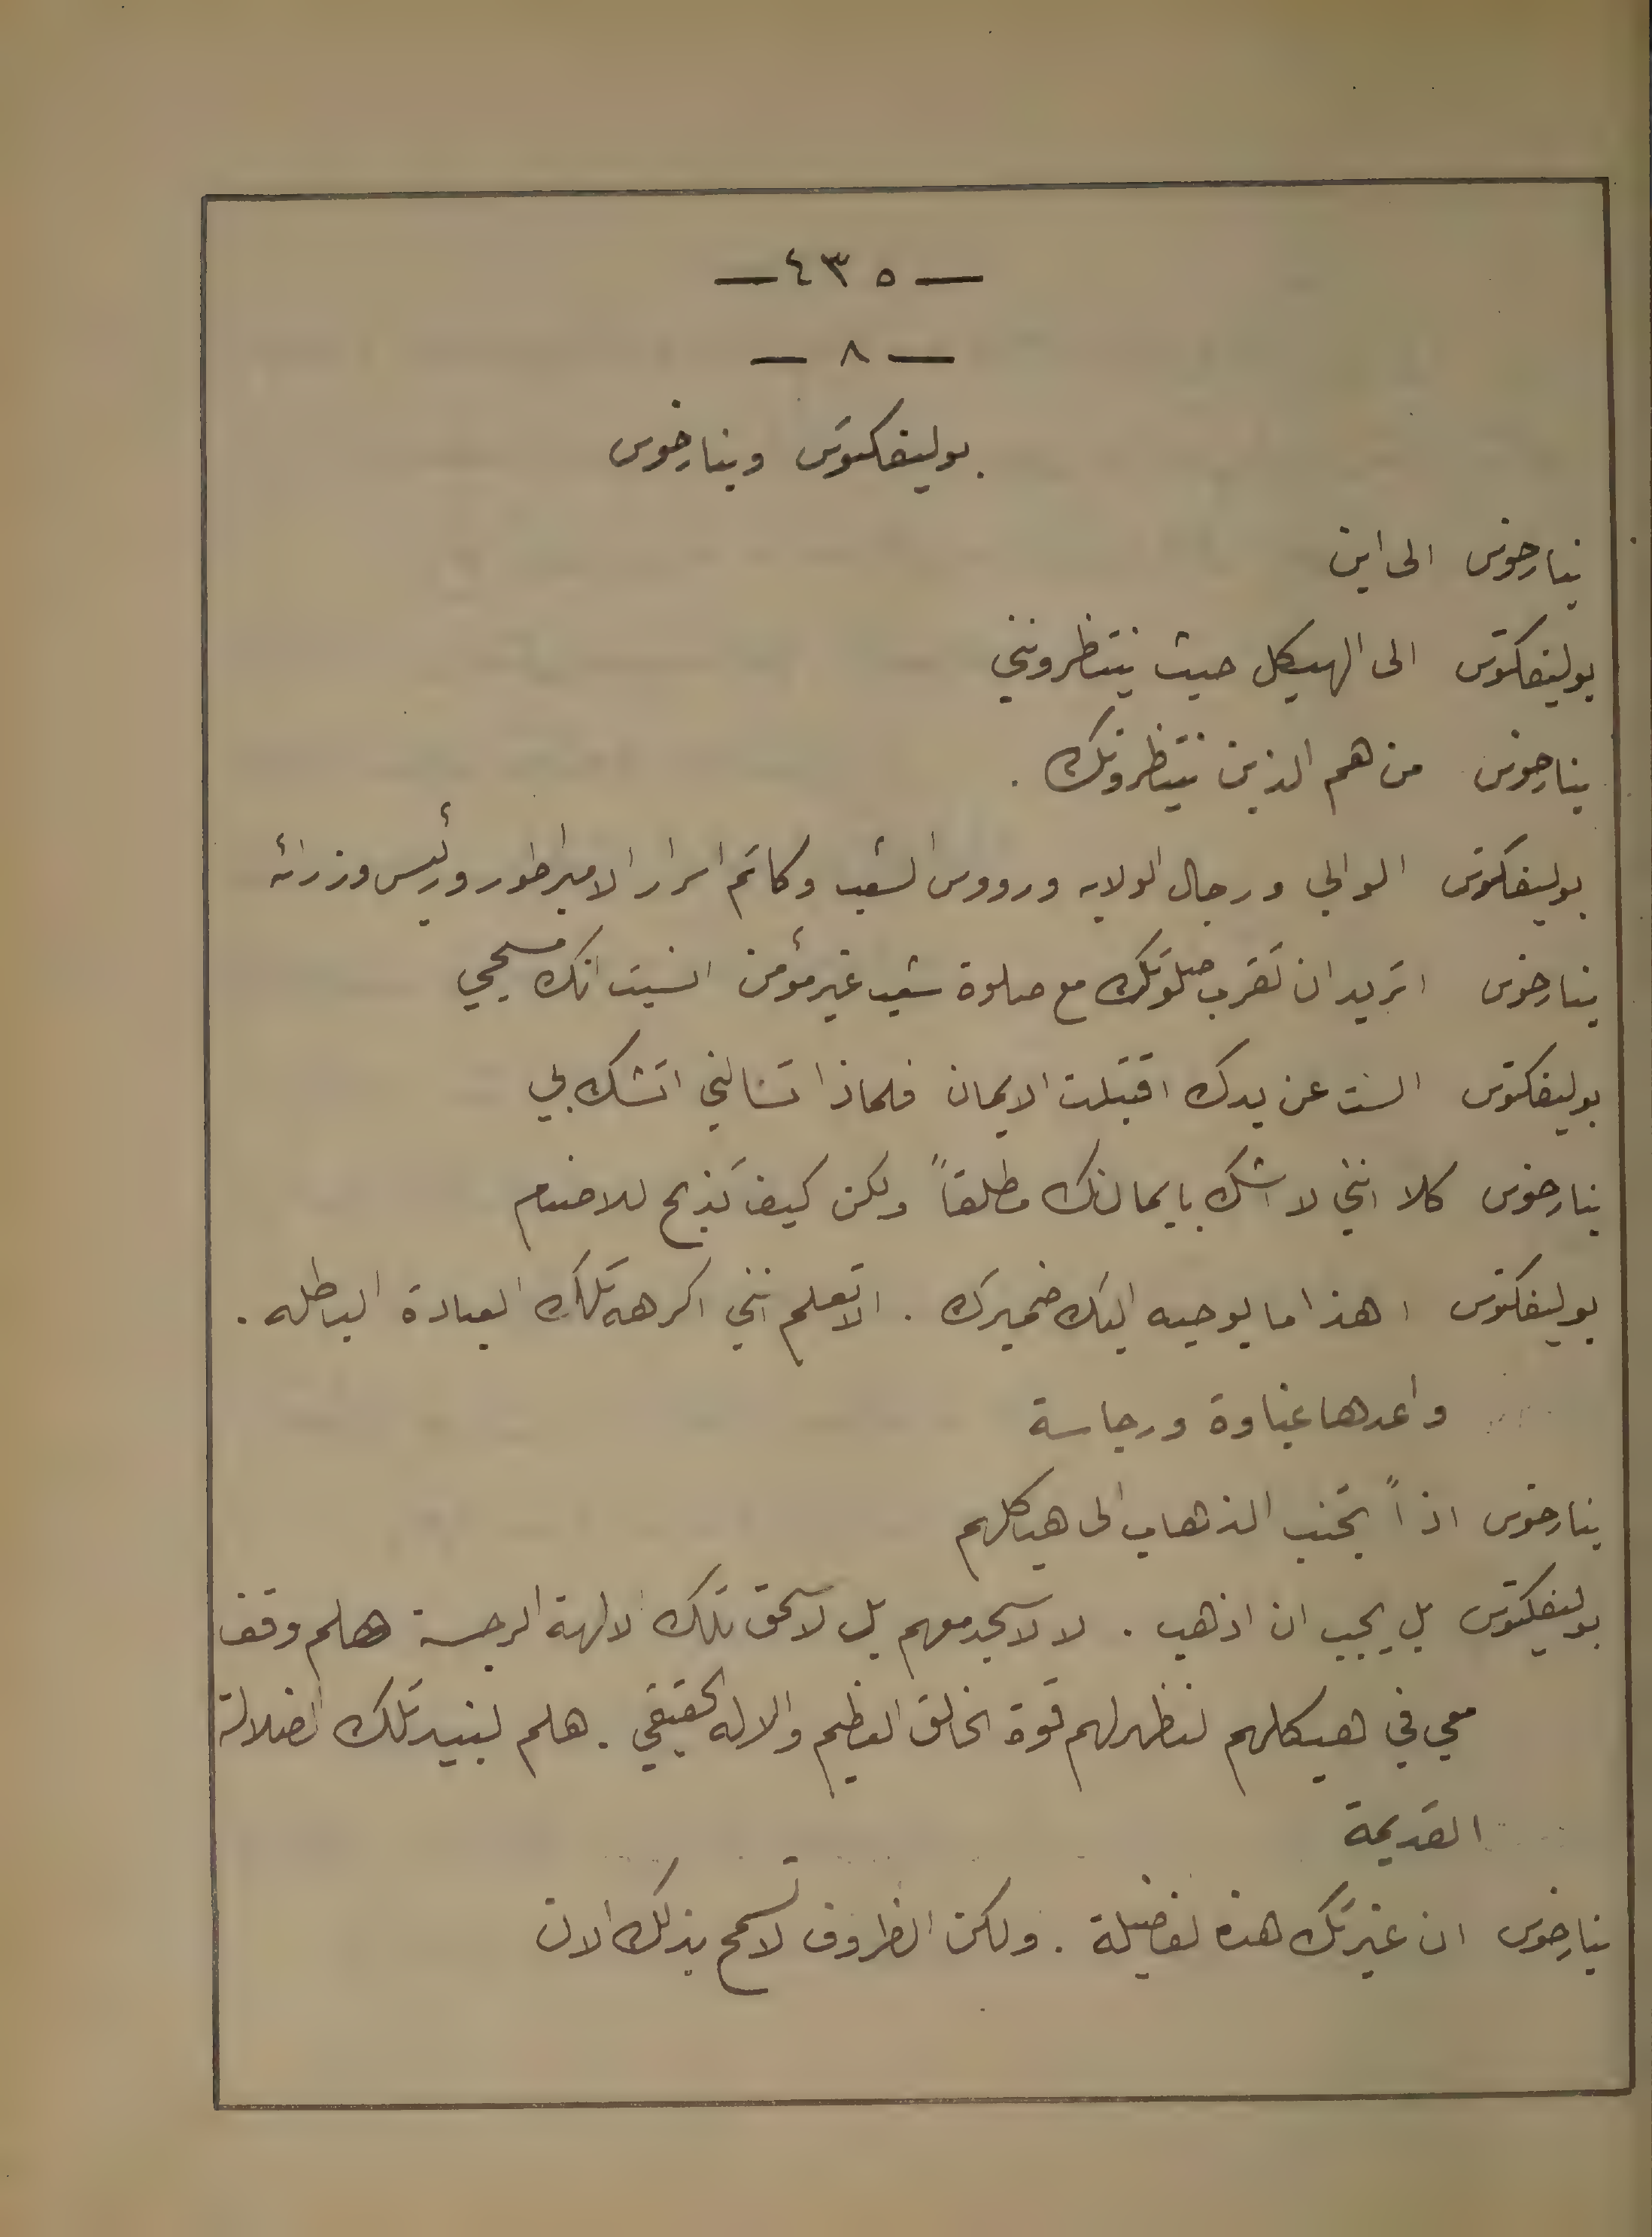 — ٤٣٥ —
— ٨ —
بوليفكتوس وينارخوس
ينارخوس الى اين
بوليفكتوس الى الهيكل حيث ينتظرونني
ينارخوس من هم الذين ينتظرونك .
بوليفكتوس الوالي ورجال الولايه ورووس الشعب وكاتم اسرار الامبراطور ورئيس وزرائه
ينارخوس اتريد ان تقرب صلوتك مع صلوة شعب غير مؤمن انسيت انك مسيحي
بوليفكتوس الست عن يدك اقتبلت الايمان فلماذا تسالني اتشك بي
ينارخوس كلا انني لا اشك بايمانك مطلقاً ولكن كيف تذبح للاصنام
بوليفكتوس اهذا ما يوحيه اليك ضميرك . الا تعلم انني اكره تلك العبادة الباطله .
واعدها غباوة ورجاسة
ينارخوس اذاً تجنب الذهاب الى هيكلهم
بوليفكتوس بل يجب ان اذهب . لا لاسجد معهم بل لاسحق تلك الالهة الرجسة هلم وقف
معي في هيكلهم لنظهر لهم قوة الخالق العظيم والاله الحقيقي . هلم لنبيد تلك الضلالة
القديمة
ينارخوس ان غيرتك هذه لفضيلة . ولكن الظروف لا تسمح بذلك الان